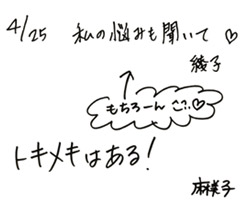 4/25 私の悩みも聞いて♡
綾子
もちろーん ♡
トキメキはある!
麻美子